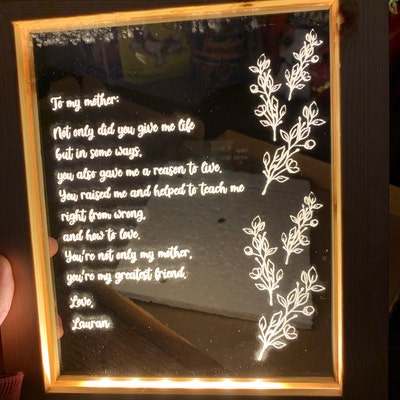 To my mother:
Not only did you give me life
but in some ways,
you also gave me a reason to live.
You raised me and helped to teach me
right from wrong,
and how to love.
You're not only my mother,
you're my greatest friend.
Love,
Lauran